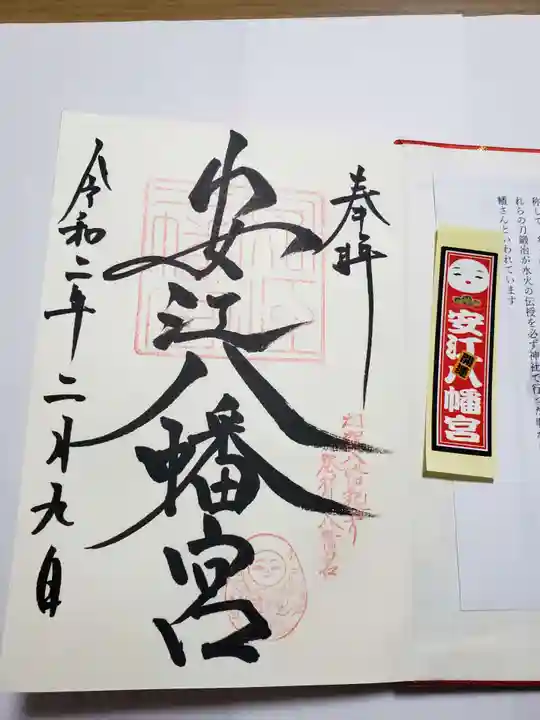 奉拝
安江八幡宮
令和二年二月九日
れらの刀鍛冶が水火の伝授を必ず神社で行った
幡さんといわれています
安江八幡宮
開運